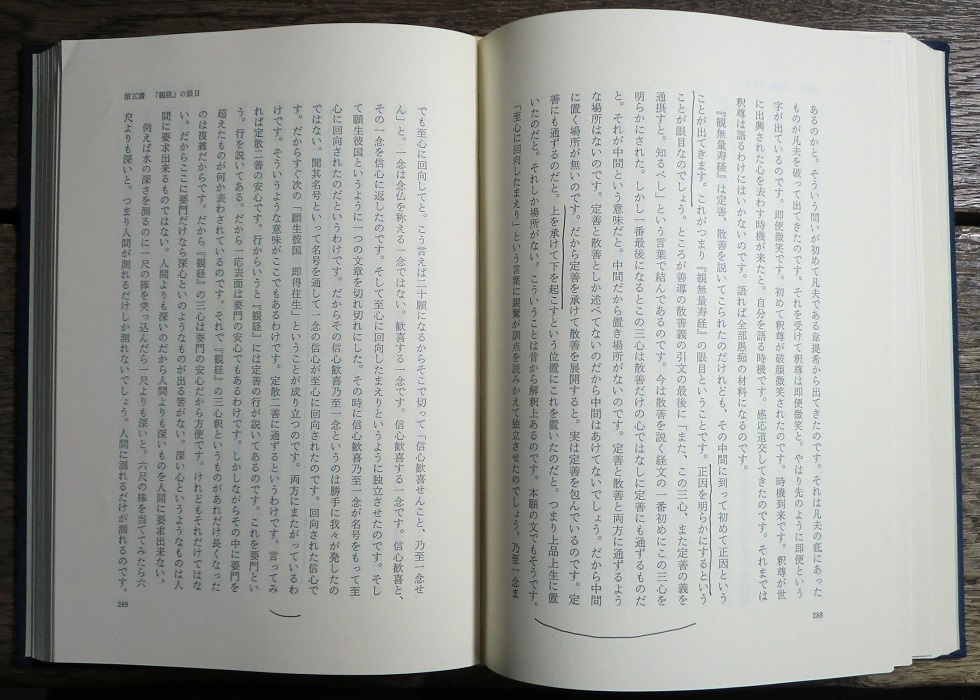 あるのかと。そういう問いが初めて凡夫である韋提希から出てきたのです。それは凡夫の底にあった
ものが凡夫を破って出てきたのです。それを受けて釈尊は即便微笑と。やはり先のように即便という
字が出ているのです。即便微笑です。初めて釈尊が破顔微笑されたのです。時機到来です。釈尊が世
に出興された心を表わす時機が来たと。自分を語る時機です。感応道交してきたのです。それまでは
釈尊は語るわけにはいかないのです。語れば全部愚痴の材料になるのです。
『観無量寿経』は定善、散善を説いてこられたのだけれども、その中間に到って初めて正因という
ことが出てきます。これがつまり『観無量寿経』の眼目ということです。正因を明らかにするという
ことが眼目なのでしょう。ところが善導の散善義の引文の最後に「また、この三心、また定善の義を
通摂すと。知るべし」という言葉で結んであるのです。今は散善を説く経文の一番初めにこの三心を
明らかにされた。しかし一番最後になるとこの三心は散善だけの心ではなしに定善にも通ずるものだ
と。それが中間という意味だと。中間だから置き場所がないのです。定善と散善と両方に通ずるよう
な場所はないのです。定善と散善としか述べてないのだから中間はあけてないでしょう。だから中間
に置く場所が無いのです。だから定善を承けて散善を展開すると、実は定善を包んでいるのです。定
善にも通ずるのだと。上を承けて下を起こすという位置にこれを置いたのだと。つまり上品上生に置
いたのだと。それしか場所がない。こういうことは昔から解釈上あるのです。本願の文でもそうです。
「至心に回向したまえり」という言葉に親鸞が訓点を読みかえて独立させたのでしょう。乃至一念ま
288
第五講 『観経』の眼目
でも至心に回向してと。こう言えば二十願になるからそこで切って「信心歓喜せんこと、乃至一念せ
ん」と。一念は念仏を称える一念ではない。歓喜する一念です。信心歓喜する一念です。信心歓喜と、
その一念を信心に返したのです。そして至心に回向したまえりというように独立させたのです。そし
て願生彼国というように一つの文章を切れ切れにした。その時に信心歓喜乃至一念が名号をもって至
心に回向されたのだというわけです。だからその信心歓喜乃至一念というのは勝手に我々が発したの
ではない。聞其名号といって名号を通して一念の信心が至心に回向されたのです。回向された信心で
す。だからすぐ次の「願生彼国 即得往生」ということが成り立つのです。両方にまたがっているわ
けです。そういうような意味がここでもあるわけです。定散二善に通ずるというわけです。言ってみ
れば定散二善の安心です。行からいうと『観経』には定善の行が説いてあるのです。これを要門とい
う。行を説いてある。だから一応表面は要門の安心でもあるわけです。しかしながらその中に要門を
超えたものが何か表わされているのです。それで『観経』の三心釈というものがあれだけ長くなった
のは複雑だからです。だから『観経』の三心は要門の安心だから方便です。けれどもそれだけではな
い。だからここに要門だけなら深心といのようなものが出る筈がない。深い心というようなものは人
間に要求出来るものではない。人間よりも深いのだから人間よりも深いものを人間に要求出来ない。
例えば水の深さを測るのに一尺の棒を突っ込んだら一尺よりも深いと。六尺の棒を当ててみたら六
尺よりも深いと。つまり人間が測れるだけしか測れないでしょう。人間に測れるだけが測れるのです。
289